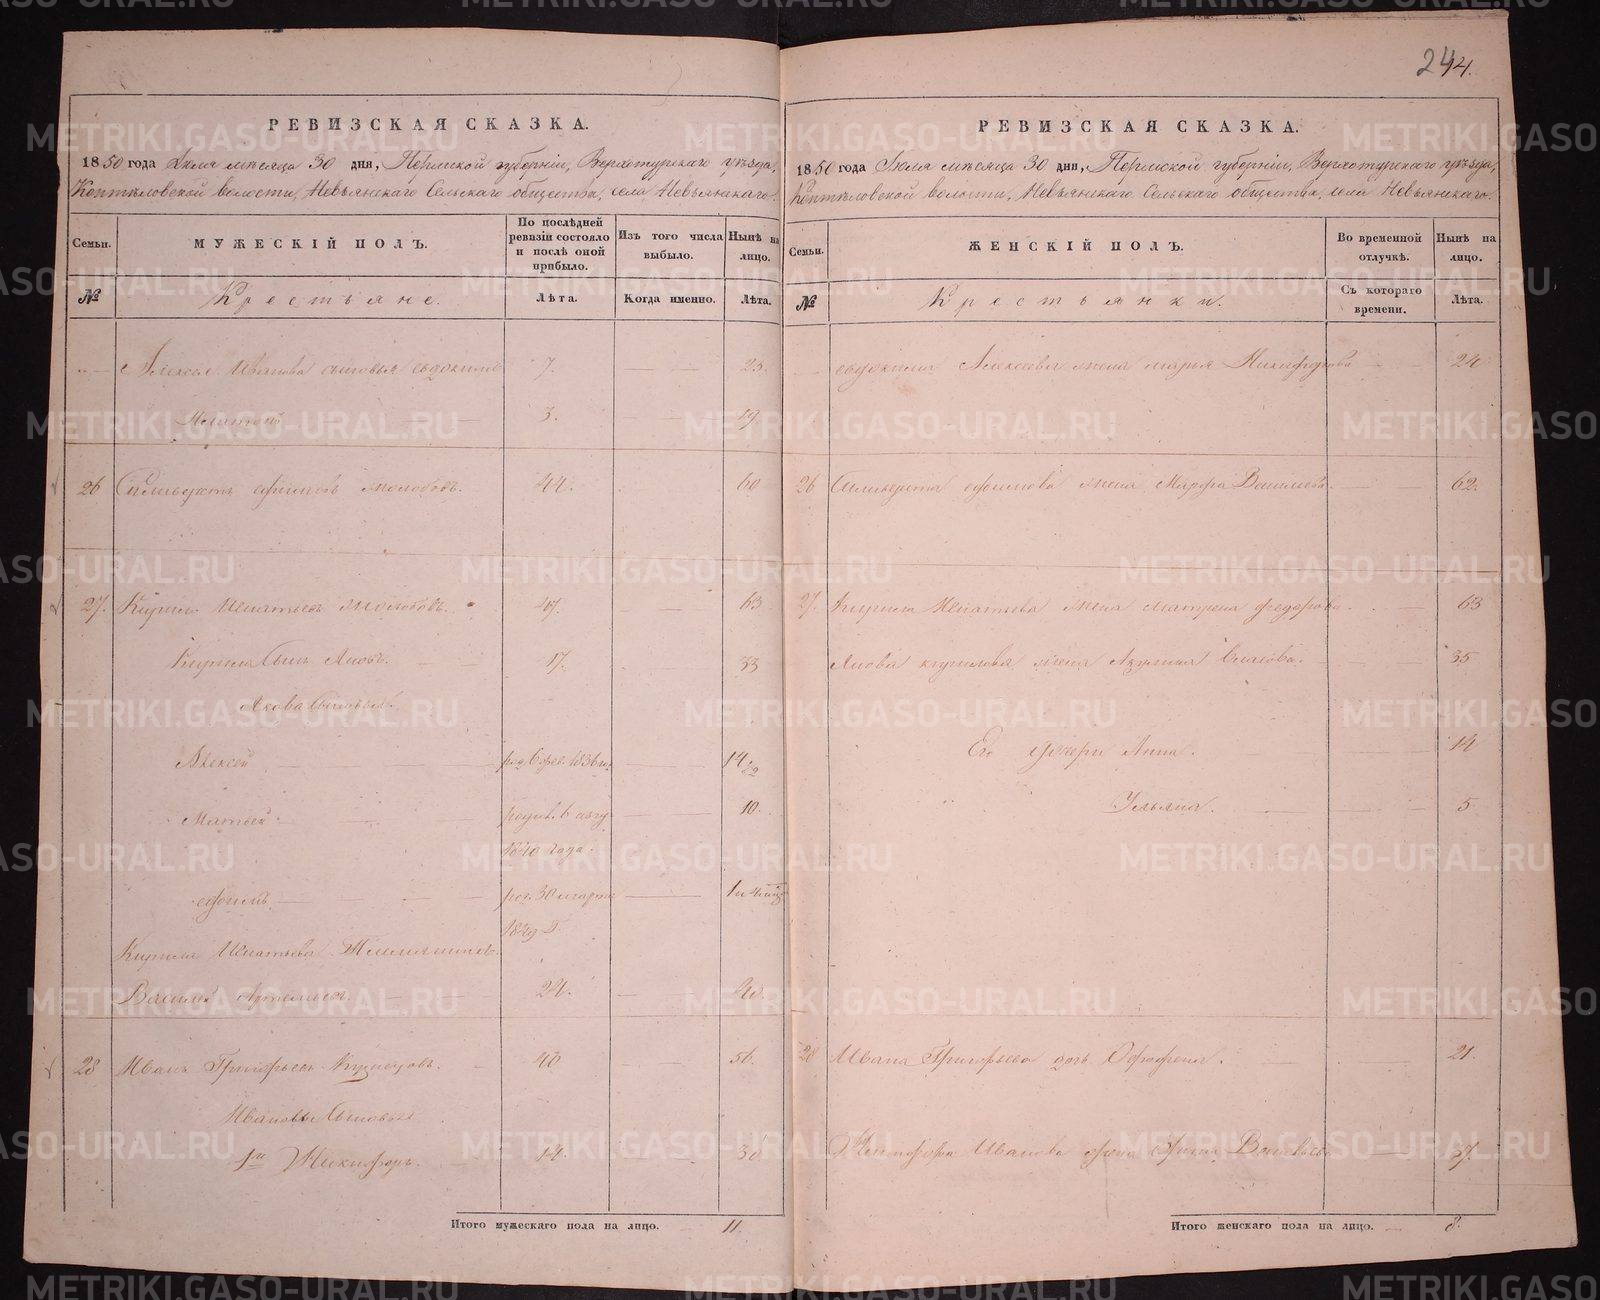 244.
РЕВИЗСКАЯ СКАЗКА.
1850 года Іюля мѣсяца 30 дня, Пермской губерніи, Верхотурскаго уѣзда,
Коптѣловской волости, Невьянскаго Сельскаго общества, села Невьянскаго.
Семьи.
МУЖЕСКІЙ ПОЛЪ.
По послѣдней ревизіи состояло и послѣ оной прибыло.
Изъ того числа выбыло.
Нынѣ на лицо.
№
Крестьяне.
Лѣта.
Когда именно.
Лѣта.
Алексея Иванова сыновья Евдокимъ 7. 23.
3. 19.
26 Ефимовъ 44. 60
27. Кирило Игнатьевъ 47. 63
Кирила сынъ Яковъ. 17. 33
Якова сыновья.
Алексей род. 6 фев. 1836 14
Матвей родив. 6 авгу 10.
1840 года.
Ефимъ род. 30 марта 1 и 4
1849 г.
Кирила Игнатьева Племянникъ
Василей Артемьевъ 24. 40.
28 Иванъ Григорьевъ Кузнецовъ. 40 56.
Ивановы Сыновья
1й Никифоръ. 14. 30
Итого мужескаго пола на лицо. 11.
РЕВИЗСКАЯ СКАЗКА.
1850 года Іюля мѣсяца 30 дня, Пермской губерніи, Верхотурскаго уѣзда,
Коптѣловской волости, Невьянскаго Сельскаго общества, села Невьянскаго.
Семьи.
ЖЕНСКІЙ ПОЛЪ.
Во временной отлучкѣ.
Нынѣ на лицо.
№
Крестьянки.
Съ котораго времени.
Лѣта.
Евдокима Алексеева жена Марья Никифорова 24
26 Ефимова жена Марфа Васильева. 62.
27. Кирила Игнатьева жена Матрена Федорова. 63
Якова Кирилова жена 35
Его дочери Анна. 14
Ульяна. 5
28 Ивана Григорьева дочь 21.
Никифора Иванова жена 37.
Итого женскаго пола на лицо. 8.
METRIKI.GASO-URAL.RU